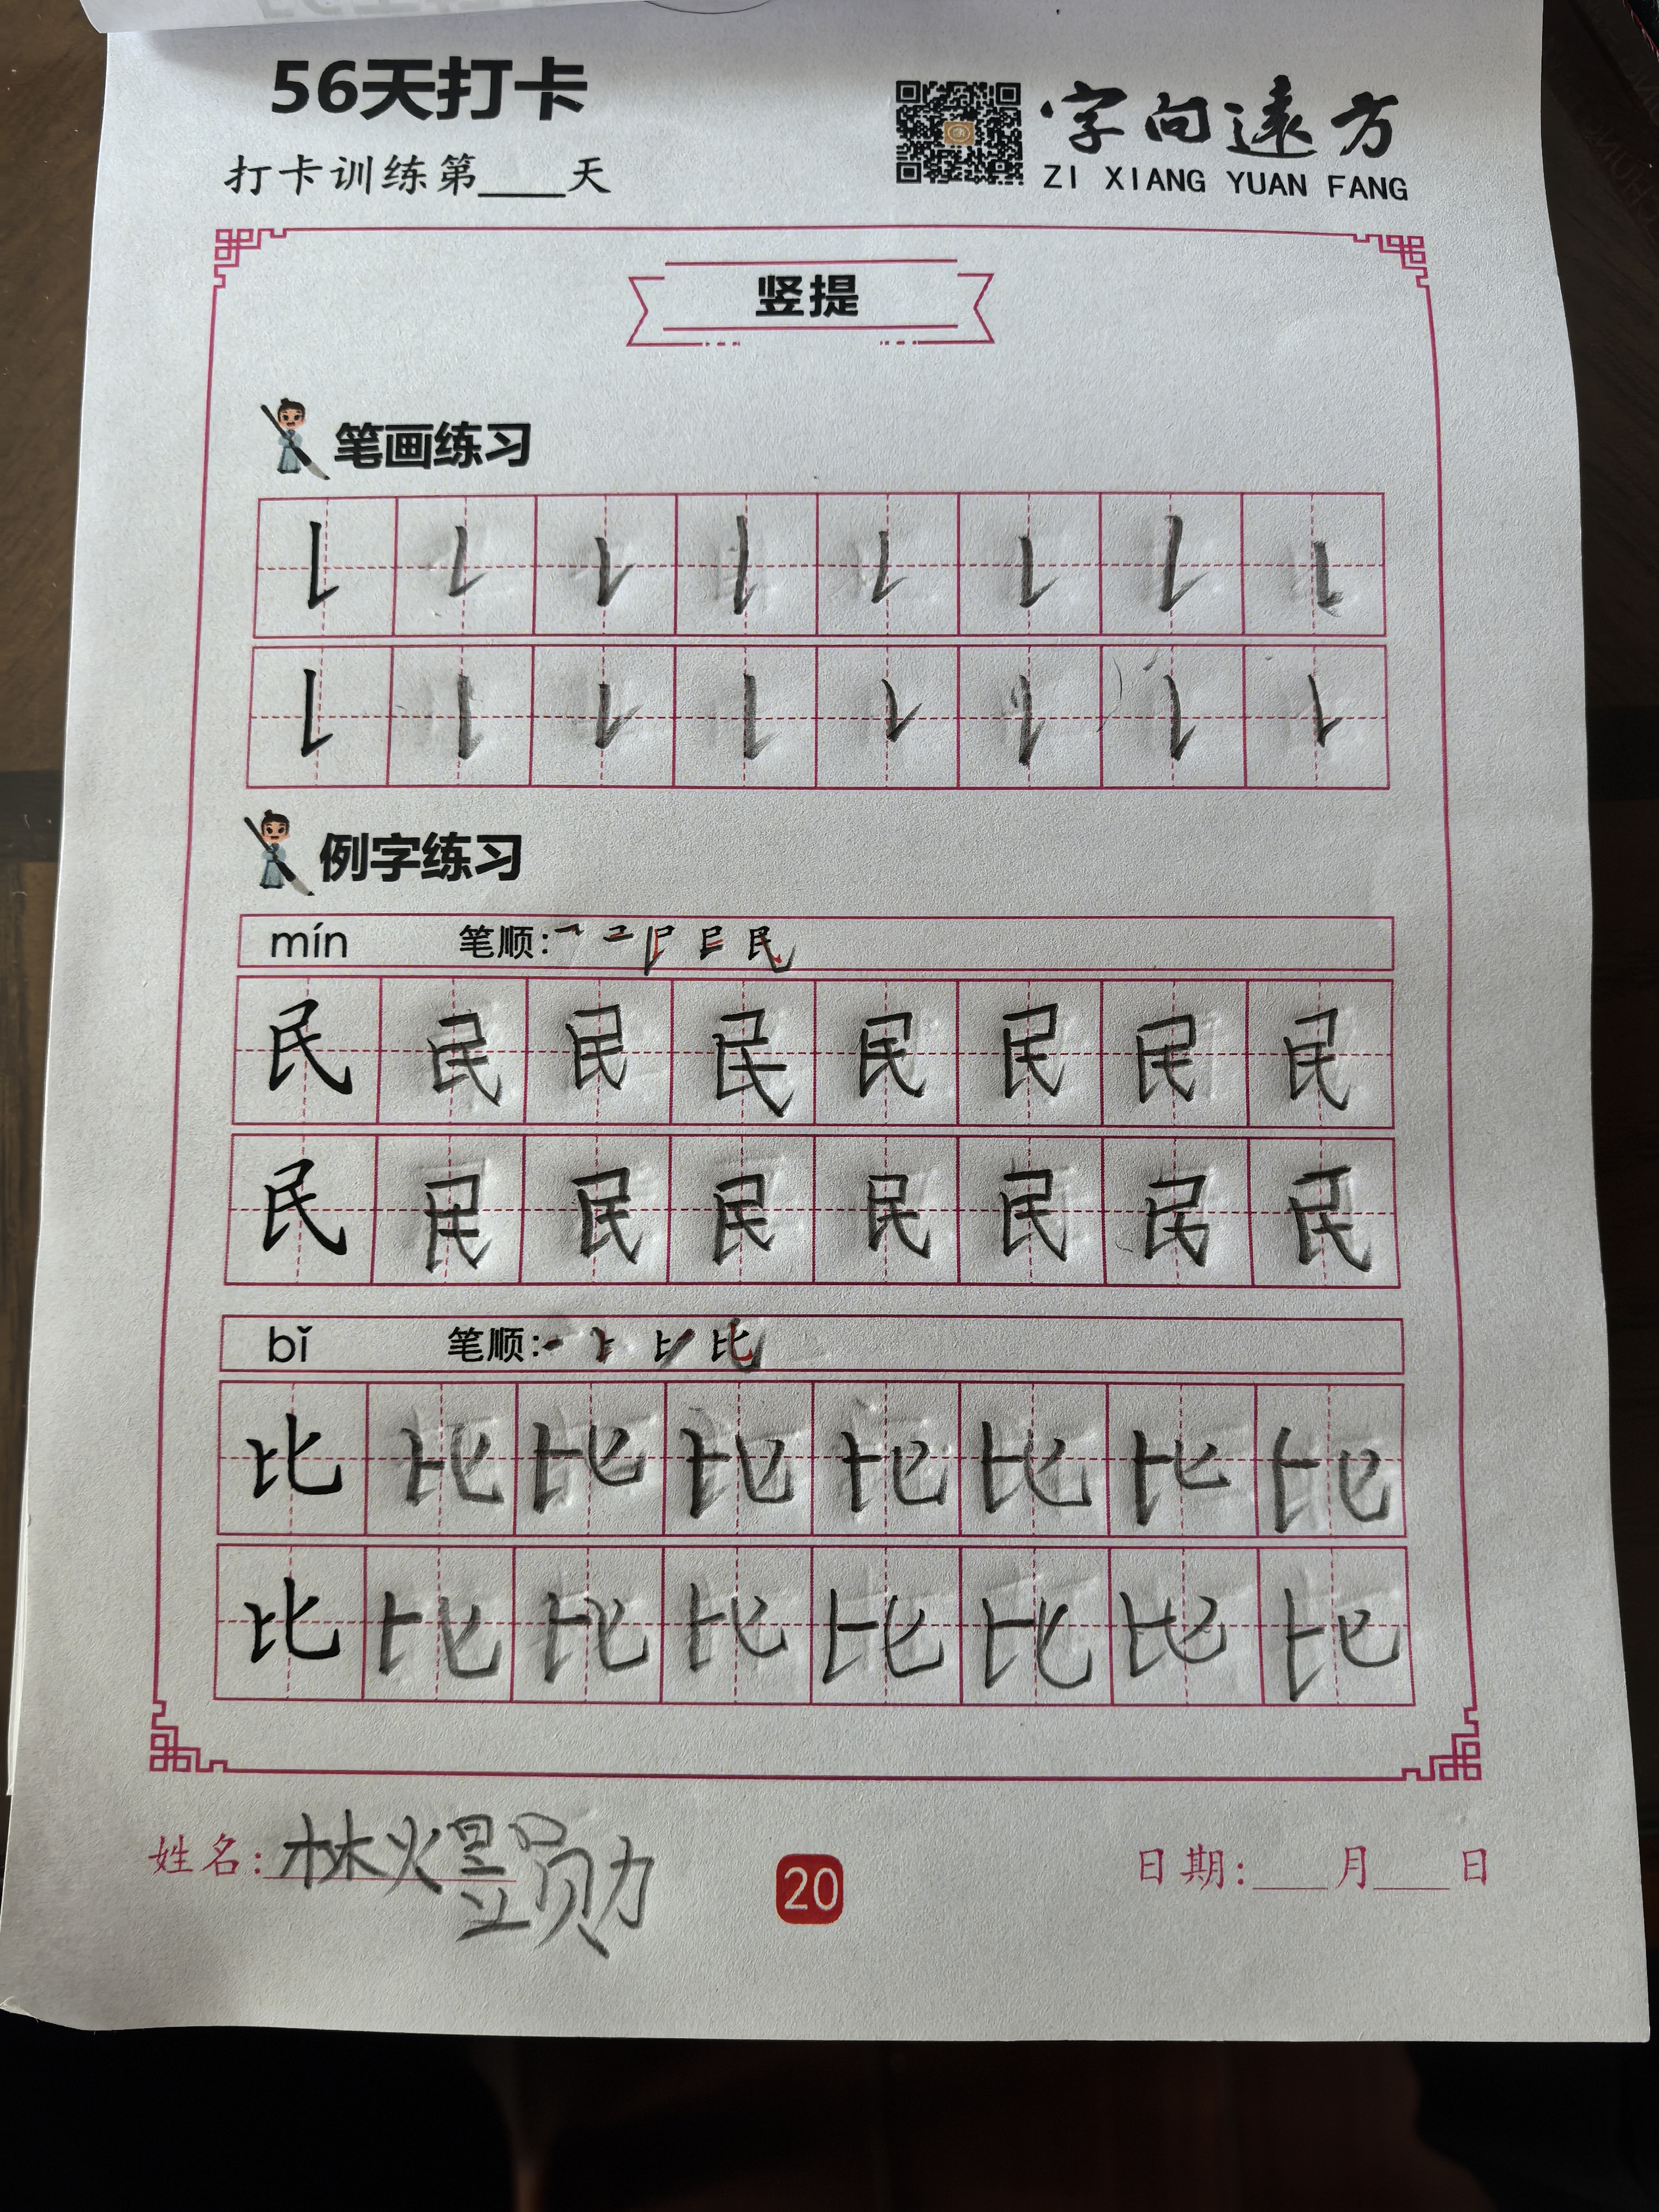 56天打卡
打卡训练第____天
字向遠方
ZI XIANG YUAN FANG
竖提
笔画练习
例字练习
mín 笔顺:
民 民 民 民 民 民 民 民
民 民 民 民 民 民 民 民
bǐ 笔顺:
比 比 比 比 比 比 比 比
比 比 比 比 比 比 比 比
姓名: 林
20
日期:___月___日